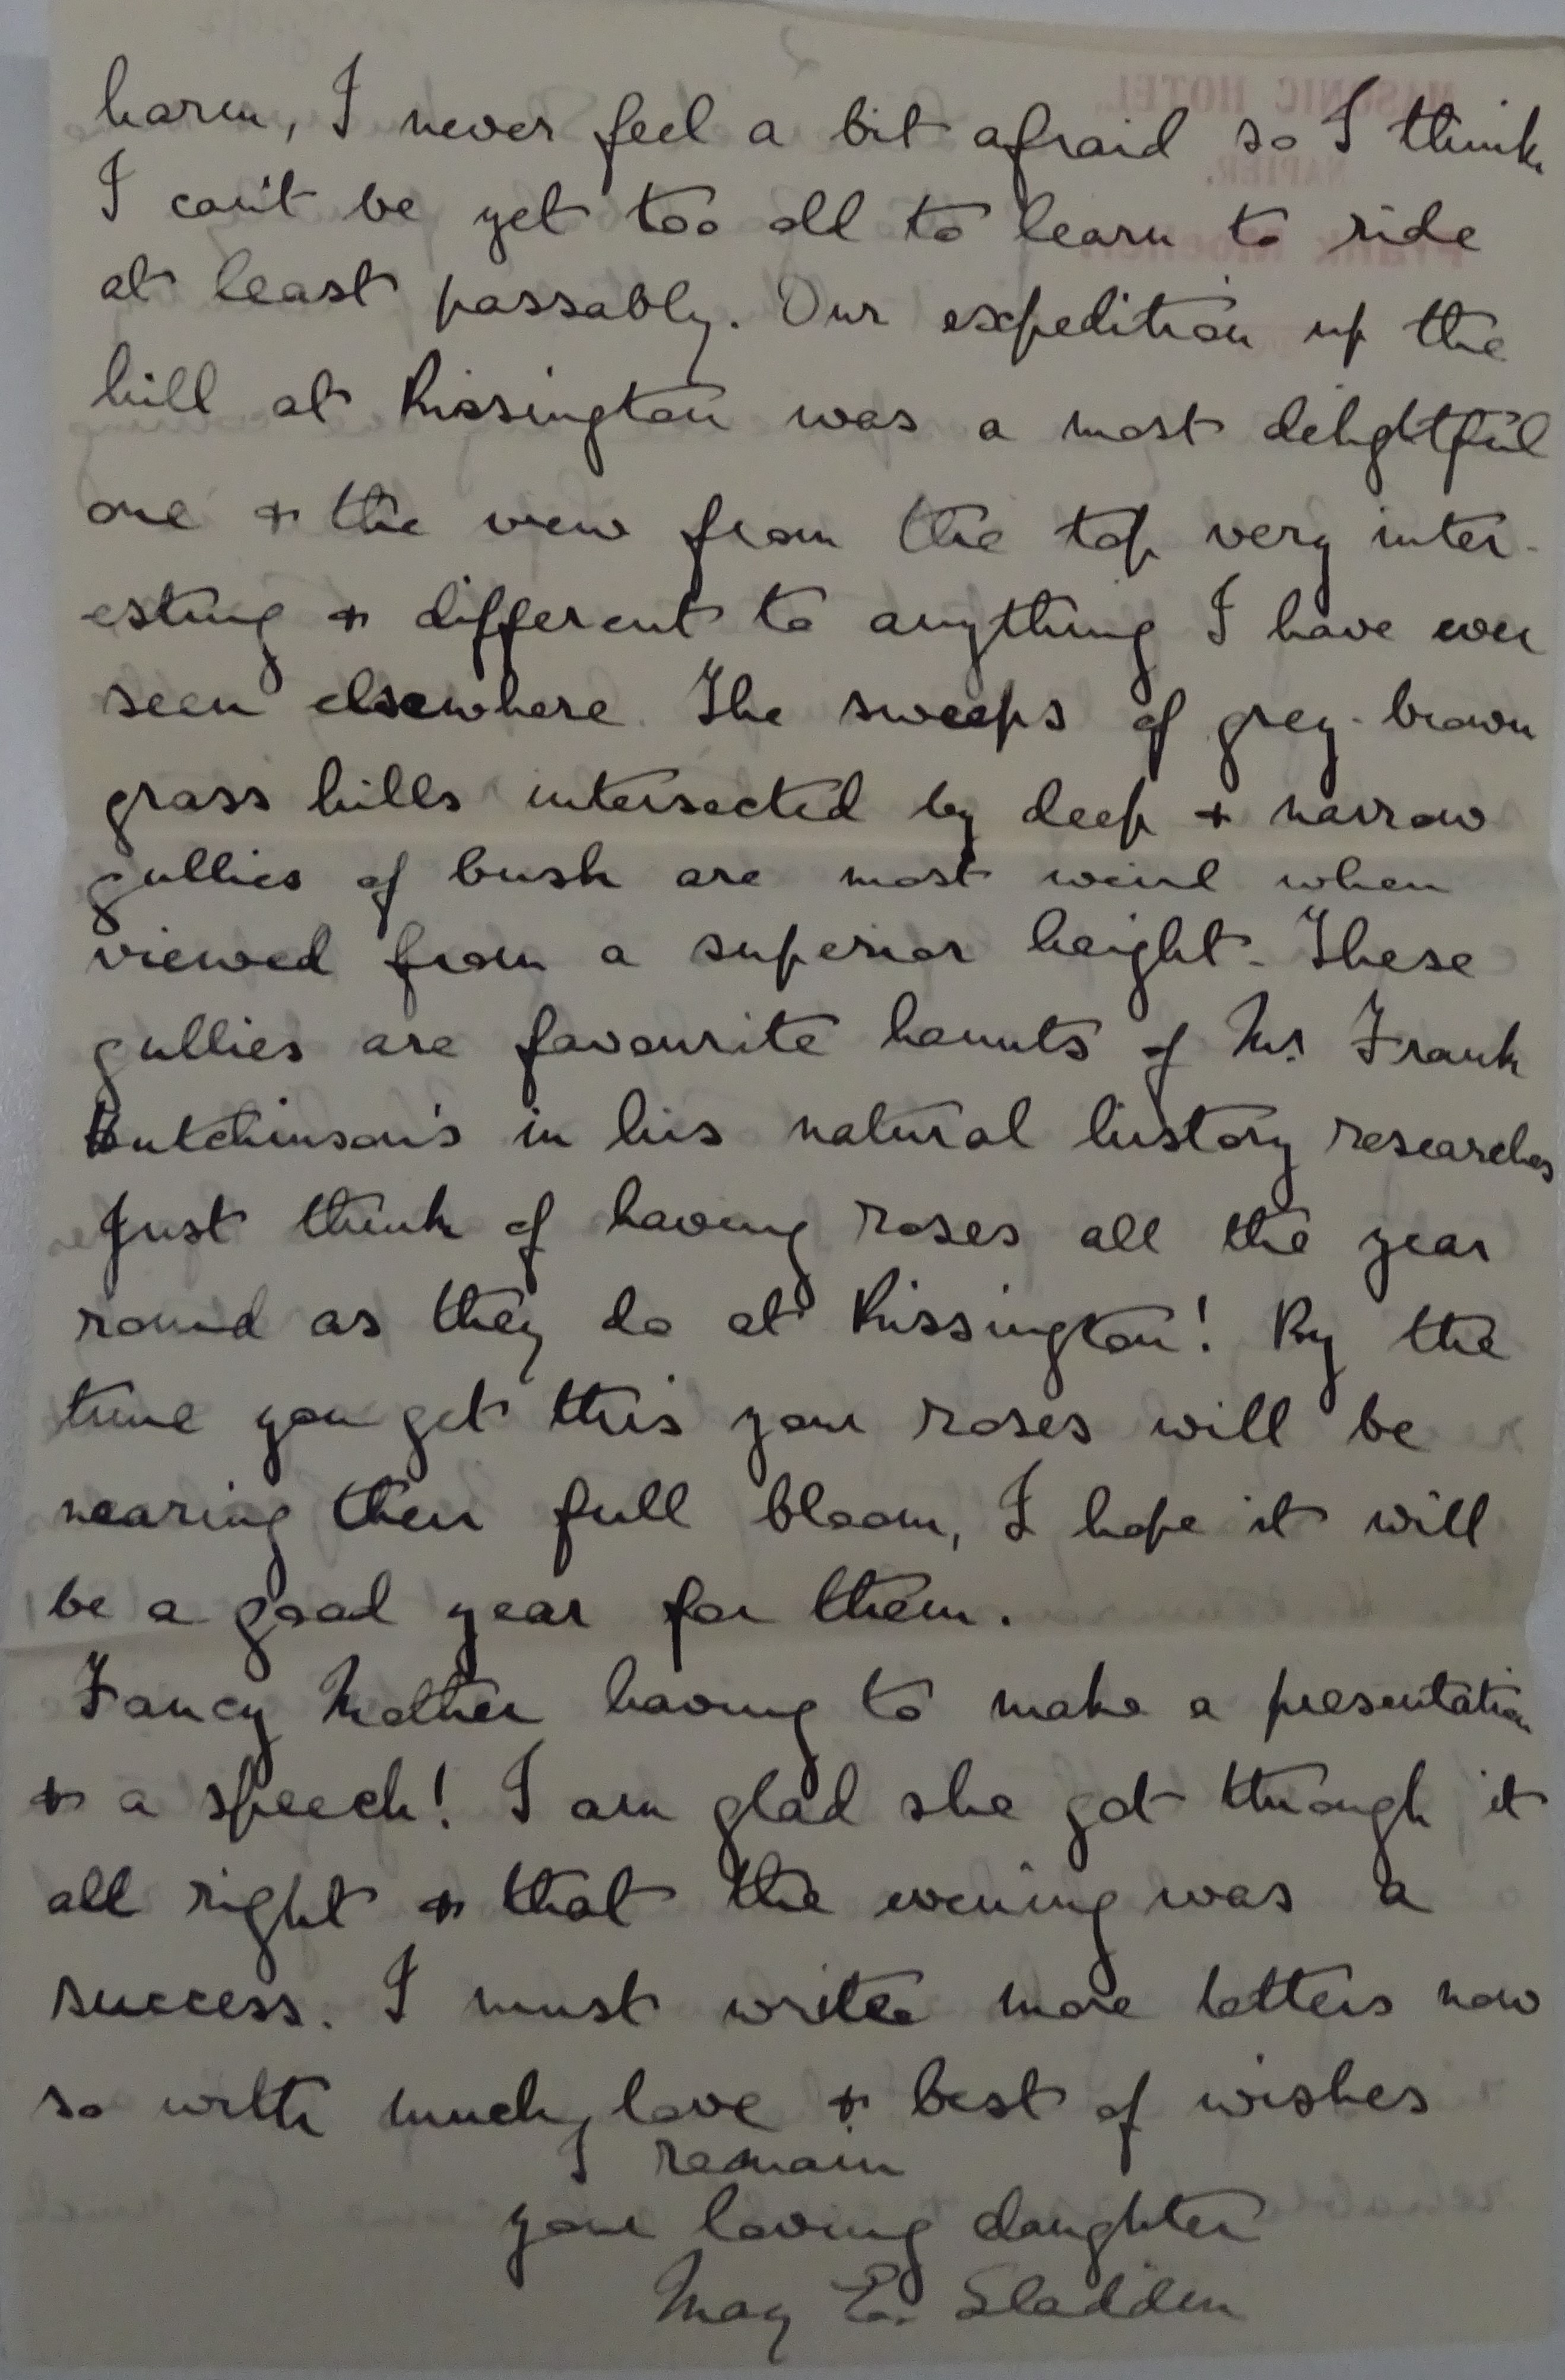 harm, I never feel a bit afraid so I think
I can't be yet too old to learn to ride
at least passably. Our expedition up the
hill at Rissington was a most delightful
one + the view from the top very inter-
esting + different to anything I have ever
seen elsewhere. The sweeps of grey-brown
grass hills intersected by deep + narrow
gullies of bush are most weird when
viewed from a superior height. These
gullies are favourite haunts of Mr Frank
Hutchinson's in his natural history researches
Just think of having roses all the year
round as they do at Rissington! By the
time you get this your roses will be
nearing their full bloom, I hope it will
be a good year for them.
Fancy Mother having to make a presentation
+ a speech! I am glad she got through it
all right + that the evening was a
success. I must write more letters now
so with much love + best of wishes
I remain
your loving daughter
May E. Sladden
MASONIC HOTEL,
NAPIER.